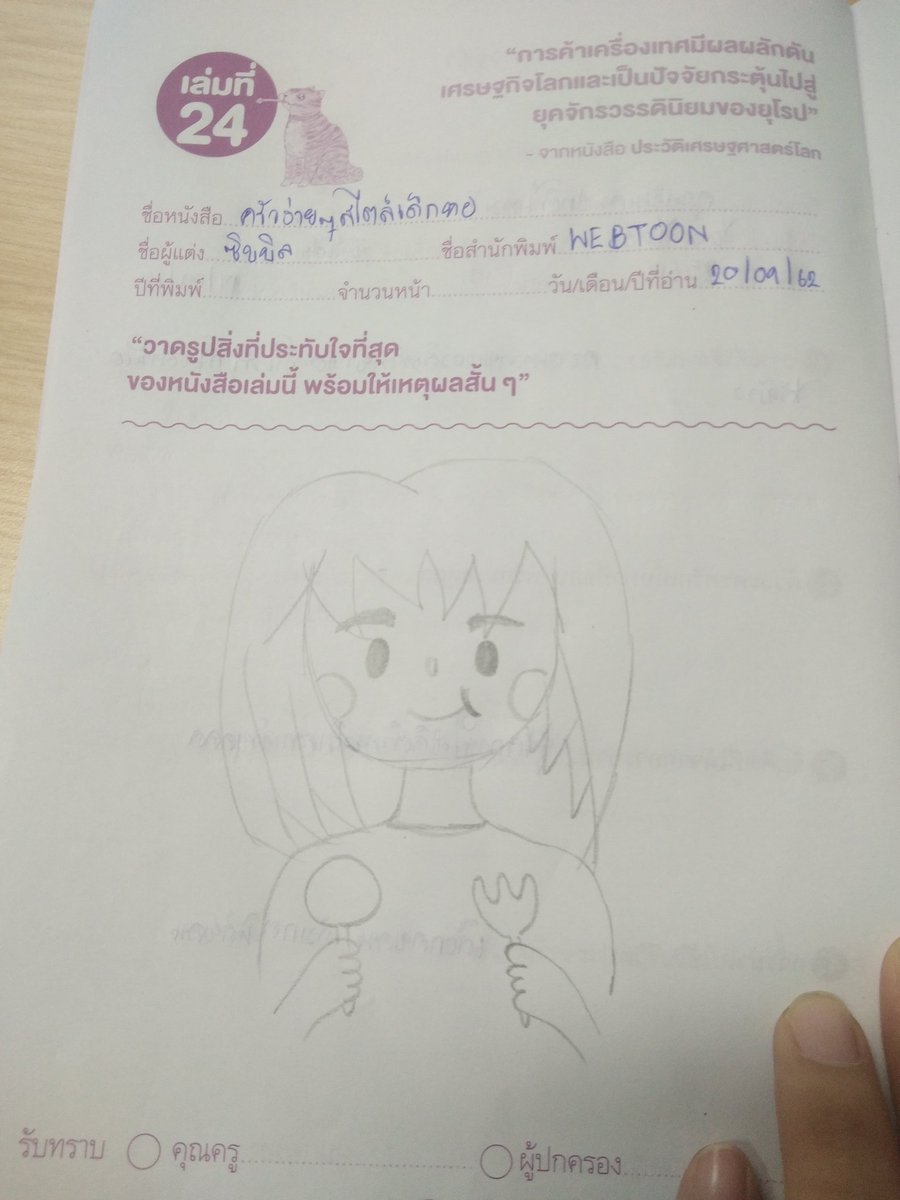 เล่มที่
24
“การค้าเครื่องเทศมีผลผลักดัน
เศรษฐกิจโลกและเป็นปัจจัยกระตุ้นไปสู่
ยุคจักรวรรดินิยมของยุโรป”
- จากหนังสือ ประวัติเศรษฐศาสตร์โลก
ชื่อหนังสือ ครัวง่ายๆสไตล์เด็กหอ
ชื่อผู้แต่ง ซิบบิล ชื่อสำนักพิมพ์ WEBTOON
ปีที่พิมพ์ จำนวนหน้า วัน/เดือน/ปีที่อ่าน 20/09/62
“วาดรูปสิ่งที่ประทับใจที่สุด
ของหนังสือเล่มนี้ พร้อมให้เหตุผลสั้น ๆ”
รับทราบ คุณครู ผู้ปกครอง